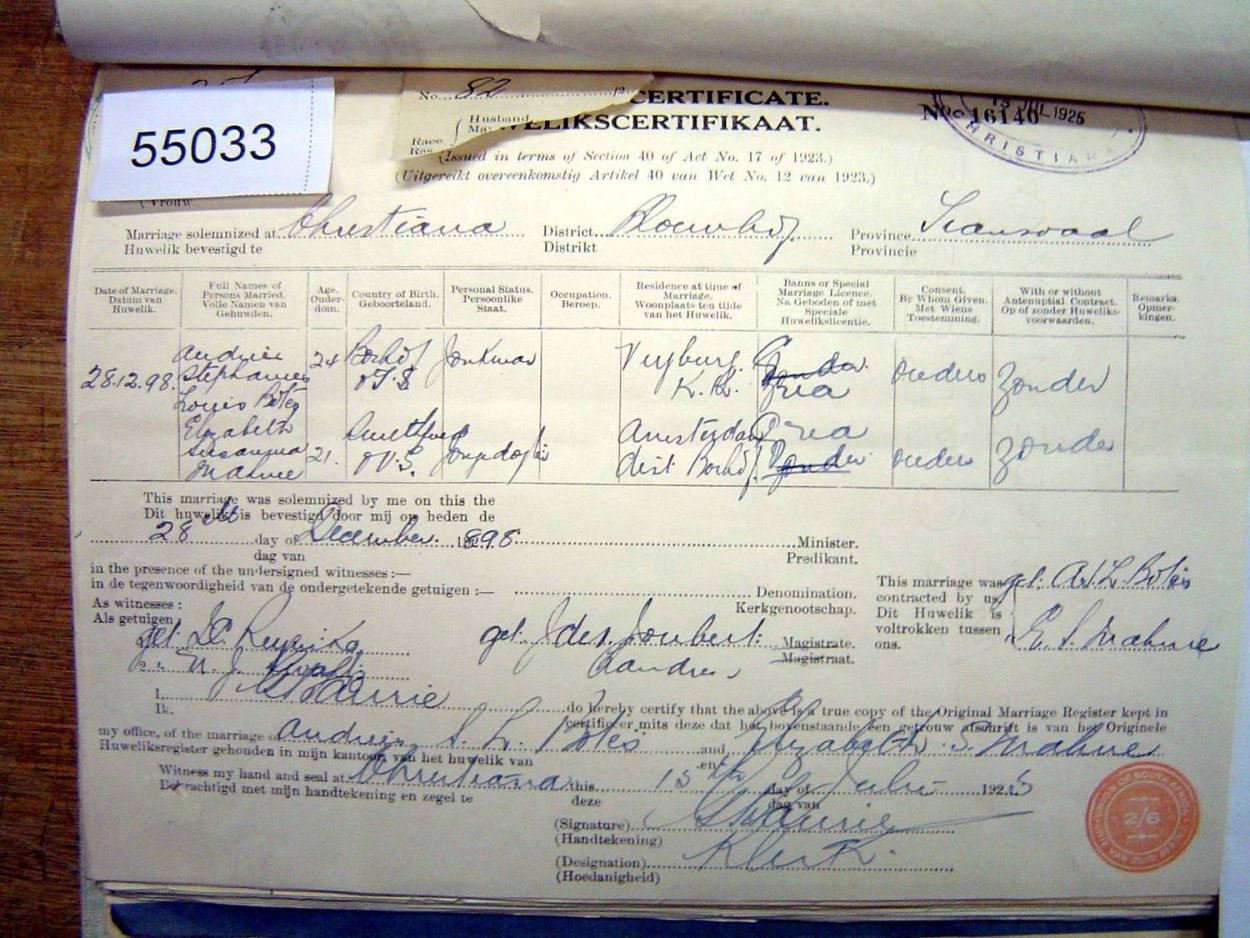 55033
No. 82
CERTIFICATE.
WELIKSCERTIFIKAAT.
Husband
Race
No. 16140
1925
CHRISTIANA
(Issued in terms of Section 40 of Act No. 17 of 1923.)
(Uitgereikt overeenkomstig Artikel 40 van Wet No. 12 van 1923.)
(Vrouw
Marriage solemnized at Christiana District Bloemhof Province Transvaal
Huwelik bevestigd te Distrikt Provincie
Date of Marriage. Datum van Huwelik.
Full Names of Persons Married. Volle Namen van Gehuwden.
Age. Ouderdom.
Country of Birth. Geboorteland.
Personal Status. Persoonlike Staat.
Occupation. Beroep.
Residence at time of Marriage. Woonplaats ten tijde van het Huwelik.
Banns or Special Marriage Licence. Na Geboden of met Speciale Huwelikslicentie.
Consent. By Whom Given. Met Wiens Toestemming.
With or without Antenuptial Contract. Op of zonder Huweliksvoorwaarden.
Remarks. Opmerkingen.
28.12.98. Andries Stephanus Louis Botes 24 Boshof Jonkman Vryburg ouders zonder
Elizabeth Susanna Mahne 21. O.V.S. Amsterdam dist. Boshof ouders zonder
This marriage was solemnized by me on this the
Dit huwelik is bevestigd door mij op heden de
28th day of December 1898 Minister.
dag van Predikant.
in the presence of the undersigned witnesses:—
in de tegenwoordigheid van de ondergetekende getuigen:— Denomination.
Kerkgenootschap.
As witnesses:
Als getuigen:
get: Joubert: Magistrate.
Landdros Magistraat.
This marriage was contracted by us get: A.S.L. Botes
Dit Huwelik is voltrokken tussen ons. E. S. Mahne
I do hereby certify that the above is a true copy of the Original Marriage Register kept in
Ik. certificeer mits deze dat het bovenstaande een getrouw afschrift is van het Originele
my office, of the marriage of Andries S. L. Botes and Elizabeth S. Mahne
Huweliksregister gehouden in mijn kantoor van het huwelik van en
Witness my hand and seal at Christiana this 15th day of Julie 1925
Bekrachtigd met mijn handtekening en zegel te deze dag van
(Signature)
(Handtekening)
(Designation) Klerk.
(Hoedanigheid)
2/6